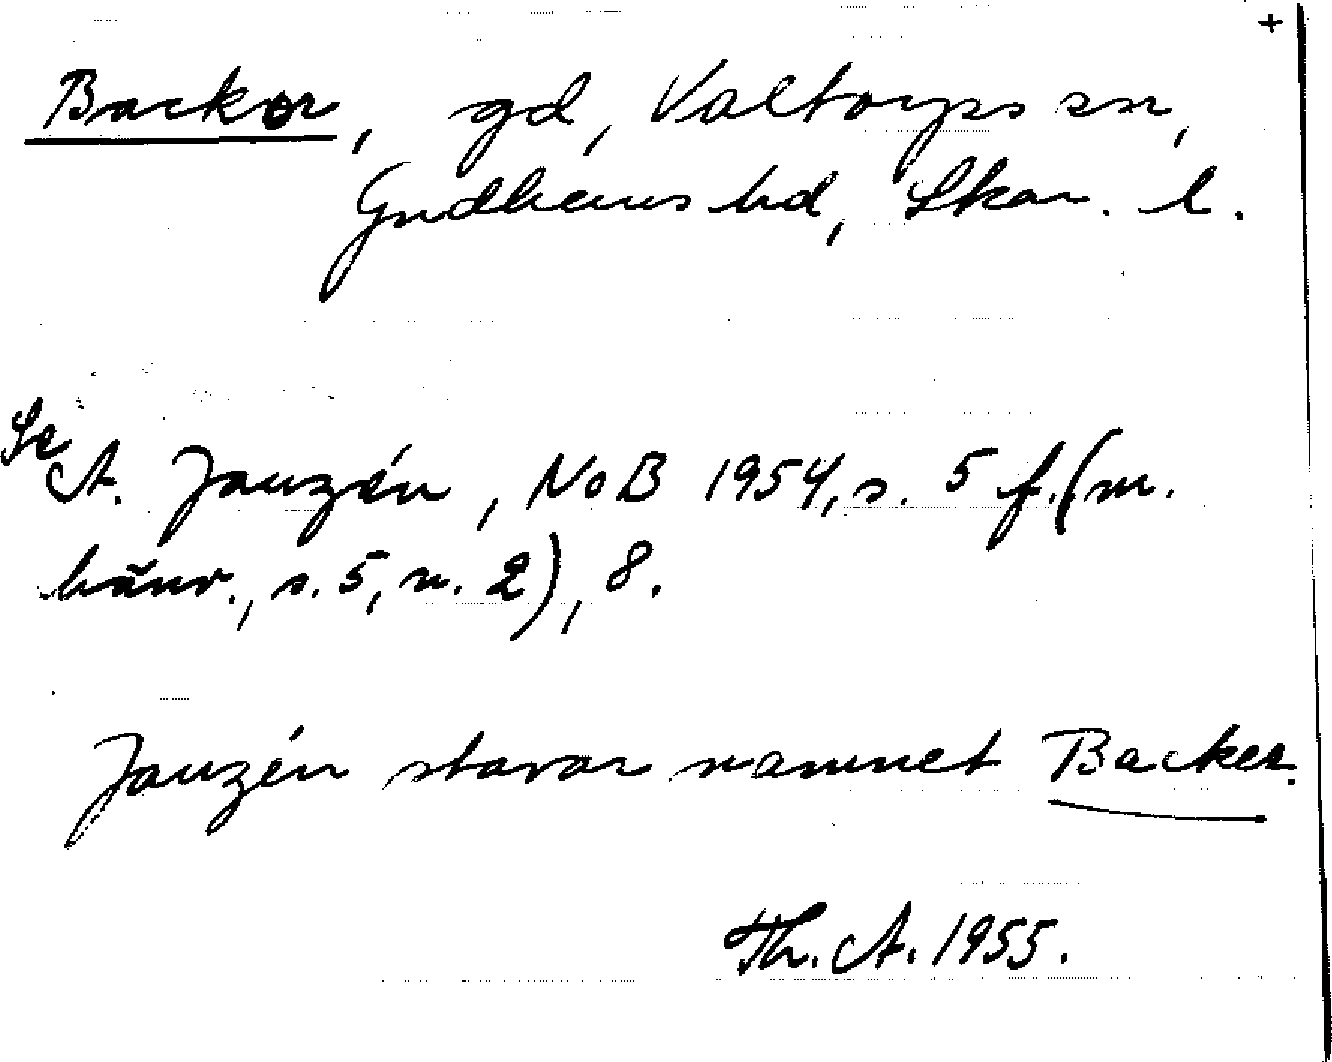 +
Backor, gd, Valtorps sn,
Gudhems hd, Skar. l.
Se
A. Janzén, NoB 1954, s. 5 f. (m.
hänv., s. 5, n. 2), 8.
Janzén stavar namnet Backer.
Th. A. 1955.